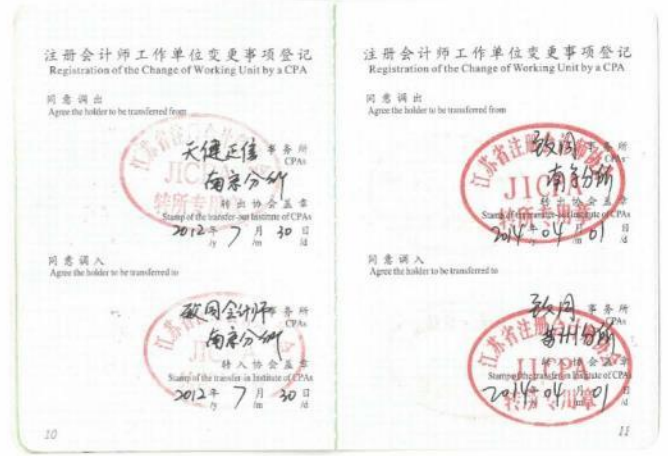 注册会计师工作单位变更事项登记
Registration of the Change of Working Unit by a CPA
同意调出
Agree the holder to be transferred from
天健正信 事务所
CPAs
南京分所
转出协会盖章
Stamp of the transfer-out Institute of CPAs
2012年 7月 30日
/y /m /d
同意调入
Agree the holder to be transferred to
致同会计师 事务所
CPAs
南京分所
转入协会盖章
Stamp of the transfer-in Institute of CPAs
2012年 7月 30日
/y /m /d
10
注册会计师工作单位变更事项登记
Registration of the Change of Working Unit by a CPA
同意调出
Agree the holder to be transferred from
致同 事务所
CPAs
南京分所
转出协会盖章
Stamp of the transfer-out Institute of CPAs
2014年 04月 01日
/y /m /d
江苏省注册会计师协会
JICPA
转所专用章
同意调入
Agree the holder to be transferred to
致同 事务所
CPAs
苏州分所
转入协会盖章
Stamp of the transfer-in Institute of CPAs
2014年 04月 01日
/y /m /d
江苏省注册会计师协会
JICPA
转所专用章
11